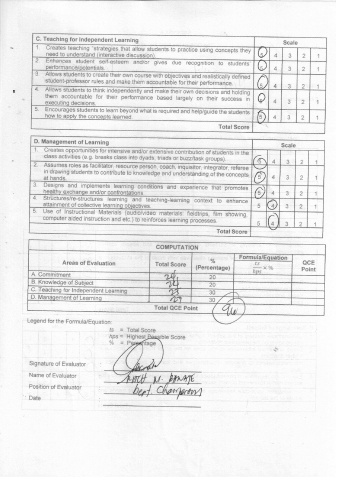 C. Teaching for Independent Learning Scale
1. Creates teaching strategies that allow students to practice using concepts they 5 4 3 2 1
need to understand (interactive discussion).
2. Enhances student self-esteem and/or gives due recognition to students 5 4 3 2 1
performance/potentials.
3. Allows students to create their own course with objectives and realistically defined 5 4 3 2 1
student-professor rules and make them accountable for their performance.
4. Allows students to think independently and make their own decisions and holding 5 4 3 2 1
them accountable for their performance based largely on their success in
executing decisions.
5. Encourages students to learn beyond what is required and help/guide the students 5 4 3 2 1
how to apply the concepts learned.
Total Score
D. Management of Learning Scale
1. Creates opportunities for intensive and/or extensive contribution of students in the 5 4 3 2 1
class activities (e.g. breaks class into dyads, triads or buzz/task groups).
2. Assumes roles as facilitator, resource person, coach, inquisitor, integrator, referee 5 4 3 2 1
in drawing students to contribute to knowledge and understanding of the concepts
at hands.
3. Designs and implements learning conditions and experience that promotes 5 4 3 2 1
healthy exchange and/or confrontations.
4. Structures/re-structures learning and teaching-learning context to enhance 5 4 3 2 1
attainment of collective learning objectives.
5. Use of Instructional Materials (audio/video materials: fieldtrips, film showing, 5 4 3 2 1
computer aided instruction and etc.) to reinforces learning processes.
Total Score
COMPUTATION
Areas of Evaluation Total Score % (Percentage) Formula/Equation QCE Point
A. Commitment 20
B. Knowledge of Subject 24 20
C. Teaching for Independent Learning 30
D. Management of Learning 30
Total QCE Point 96
Legend for the Formula/Equation:
ts = Total Score
hps = Highest Possible Score
% = Percentage
Signature of Evaluator
Name of Evaluator
Position of Evaluator Dept. Chairperson
Date